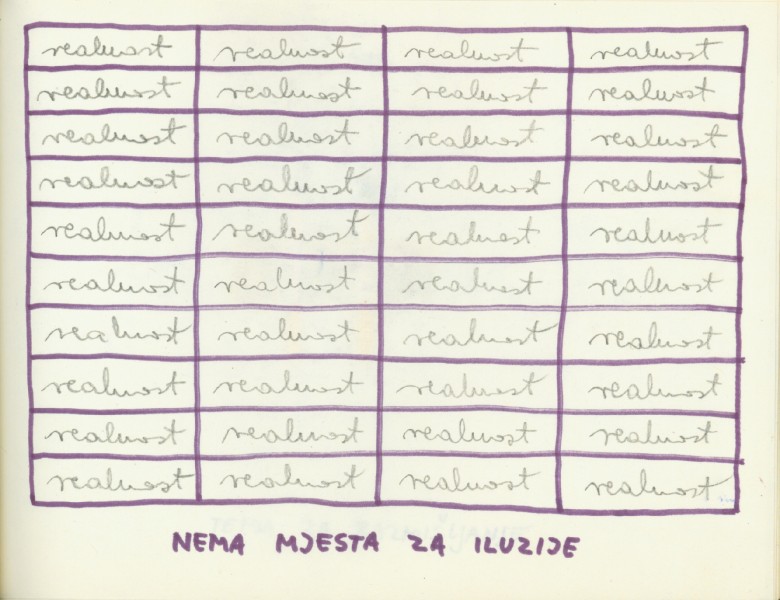 realnost realnost realnost realnost
realnost realnost realnost realnost
realnost realnost realnost realnost
realnost realnost realnost realnost
realnost realnost realnost realnost
realnost realnost realnost realnost
realnost realnost realnost realnost
realnost realnost realnost realnost
realnost realnost realnost realnost
realnost realnost realnost realnost
NEMA MJESTA ZA ILUZIJE